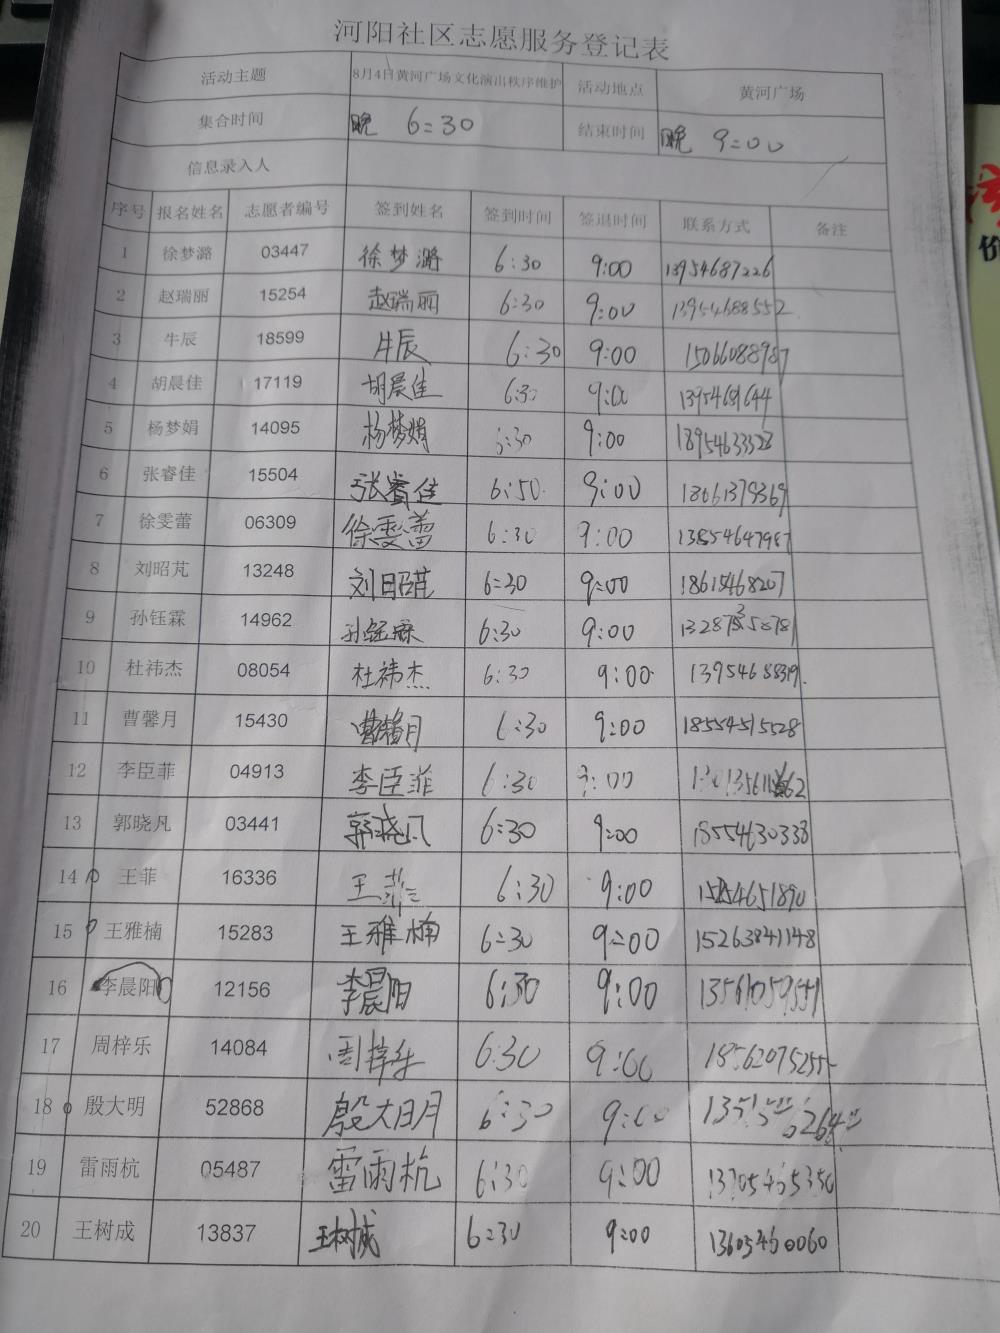 河阳社区志愿服务登记表
活动主题 8月4日黄河广场文化演出秩序维护 活动地点 黄河广场
集合时间 晚 6:30 结束时间 晚 9:00
信息录入人
序号 报名姓名 志愿者编号 签到姓名 签到时间 签退时间 联系方式 备注
1 徐梦潞 03447 徐梦潞 6:30 9:00 13954687226
2 赵瑞丽 15254 赵瑞丽 6:30 9:00 13954688552
3 牛辰 18599 牛辰 6:30 9:00 15066088987
4 胡晨佳 17119 胡晨佳 6:30 9:00
5 杨梦娟 14095 杨梦娟 6:30 9:00 18954633528
6 张睿佳 15504 张睿佳 6:50 9:00 18061379369
7 徐雯蕾 06309 徐雯蕾 6:30 9:00 13854647987
8 刘昭芃 13248 刘昭芃 6:30 9:00 18615468207
9 孙钰霖 14962 孙钰霖 6:30 9:00
10 杜祎杰 08054 杜祎杰 6:30 9:00
11 曹馨月 15430 曹馨月 6:30 9:00 18554515528
12 李臣菲 04913 李臣菲 6:30 9:00
13 郭晓凡 03441 郭晓凡 6:30 9:00 18554630338
14 王菲 16336 王菲 6:30 9:00 15254651890
15 王雅楠 15283 王雅楠 6:30 9:00 15263841148
16 李晨阳 12156 李晨阳 6:30 9:00
17 周梓乐 14084 周梓乐 6:30 9:00 18562075255
18 殷大明 52868 殷大明 6:30 9:00
19 雷雨杭 05487 雷雨杭 6:30 9:00 13705465350
20 王树成 13837 王树成 6:30 9:00 13605460060
价